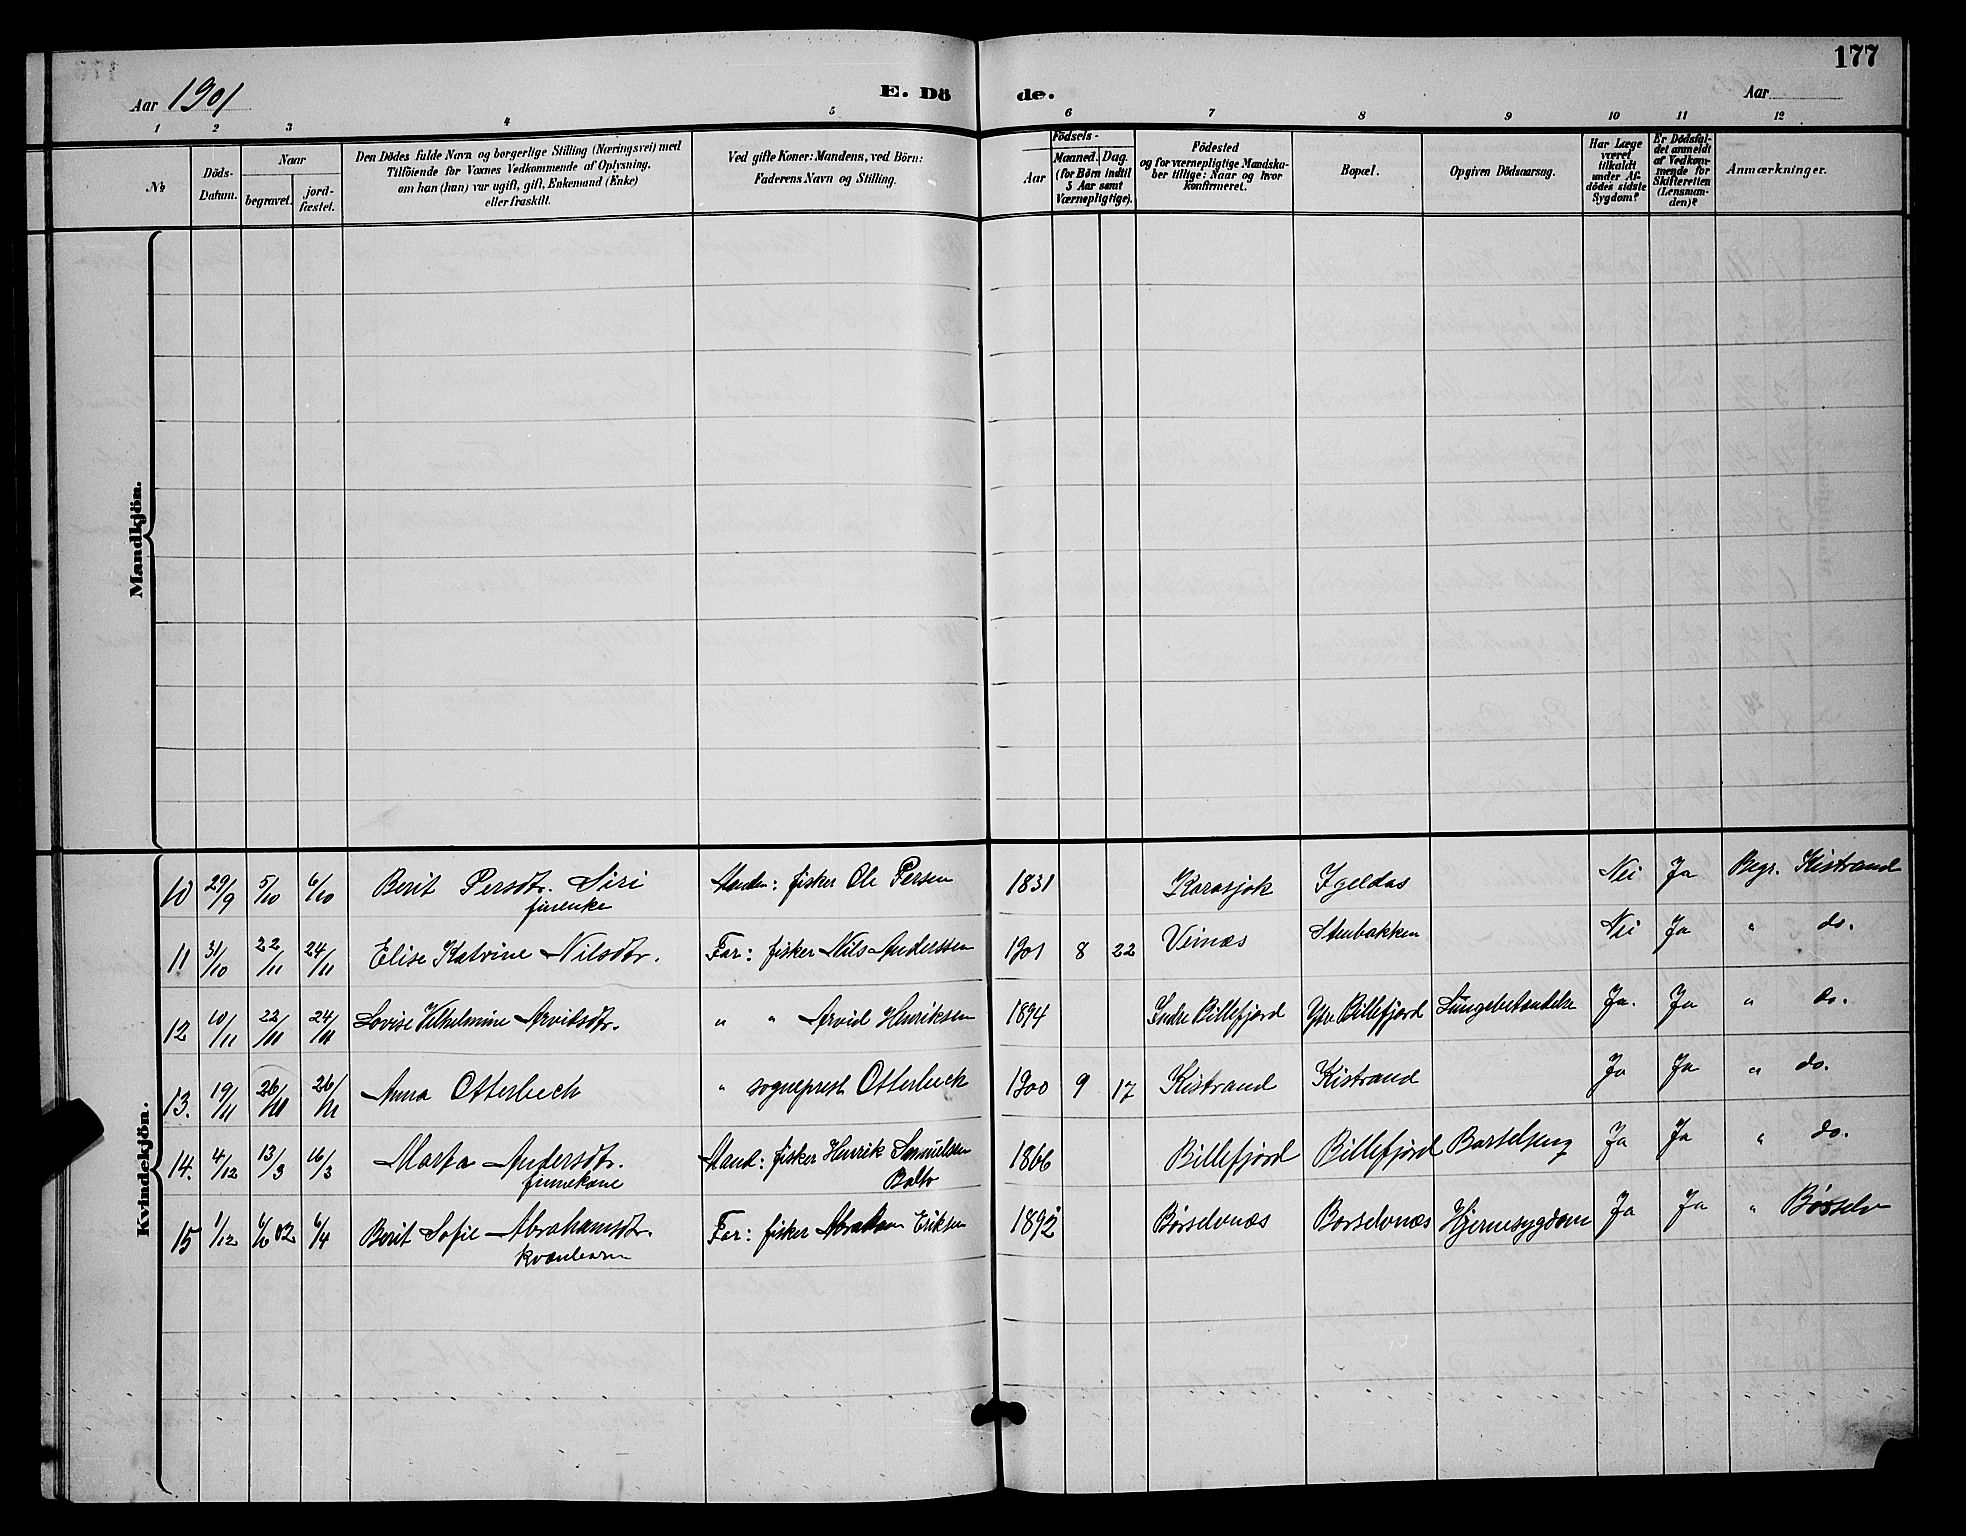 177
Aar 1901
E. Dö de.
Aar
1 2 3 4 5 6 7 8 9 10 11 12
№
Döds-Datum.
Naar
begravet.
jord-fæstet.
Den Dödes fulde Navn og borgerlige Stilling (Næringsvei) med
Tilföiende for Voxnes Vedkommende af Oplysning,
om han (hun) var ugift, gift, Enkemand (Enke)
eller fraskilt.
Ved gifte Koner: Mandens, ved Börn:
Faderens Navn og Stilling.
Födsels-
Aar
Maaned. Dag.
(for Börn indtil
5 Aar samt
Værnepligtige).
Födested
og for værnepligtige Mandska-
ber tillige: Naar og hvor
Konfirmeret.
Bopæl.
Opgiven Dödsaarsag.
Har Læge
været
tilkaldt
under Af-
dödes sidste
Sygdom?
Er Dödsfal-
det anmeldt
af Vedkom-
mende for
Skifteretten
(Lensman-
den)?
Anmærkninger.
Mandkjön.
Kvindekjön.
10 29/9 5/10 6/10 Berit Persdtr. Siri Manden: fisker Ole Persen 1831 Karasjok Igeldas Nei Ja Begr. Kistrand
finenke
11 31/10 22/11 24/11 Elise Katrine Nilsdtr. Far: fisker Nils Anderssen 1901 8 22 Vinæs Stenbakken Nei Ja " do.
12 10/11 22/11 24/11 Lovise Vilhelmine Arvidsdtr. " " Arvid Henriksen 1894 Indre Billefjord Ytre Billefjord Lungebetændelse Ja. Ja " do.
13. 19/11 26/11 26/11 Anna Otterbech " sogneprest Otterbech 1900 9 17 Kistrand Kistrand Ja Ja " do.
14. 4/12 13/3 16/3 Marta Andersdtr. Mand: fisker Henrik Samuelsen 1866 Billefjord Billefjord Barselseng Ja Ja " do.
finnekone Balto
15 1/12 6/4 02 6/4 Berit Sofie Abrahamsdtr. Far: fisker Abraham Eriksen 1892 Børselvnæs Børselvnæs Hjernesygdom Ja Ja " Børselv
kvænbarn